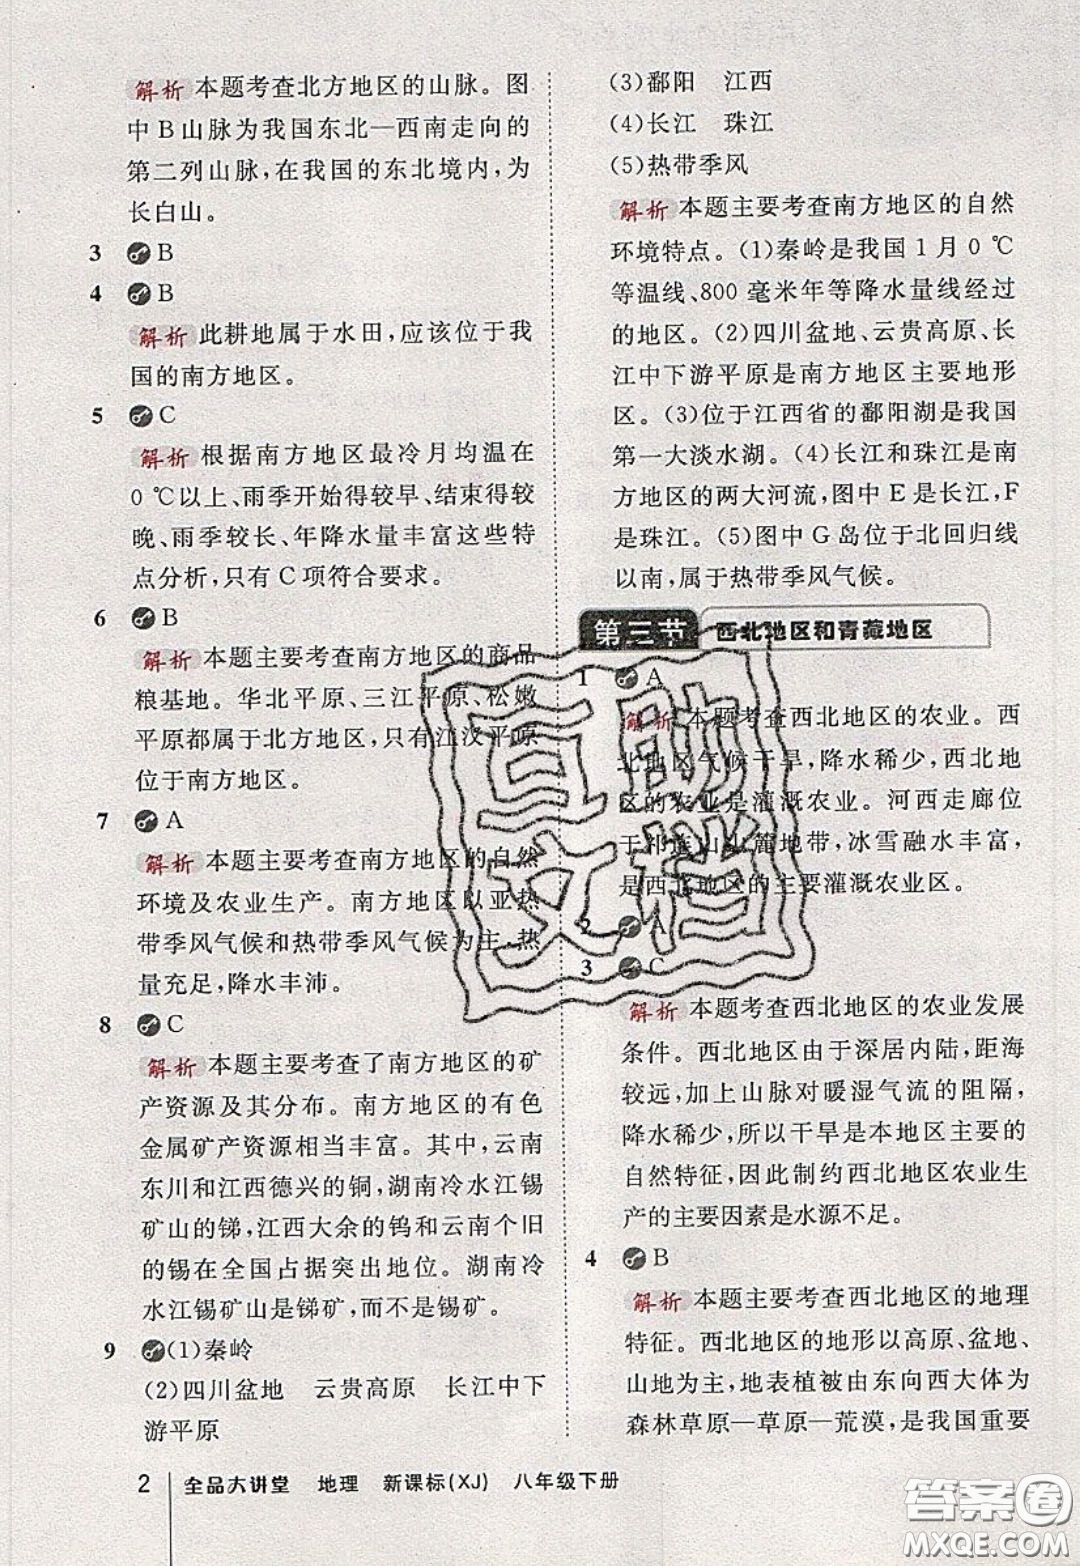 解析 本题考查北方地区的山脉。图
中B山脉为我国东北—西南走向的
第二列山脉,在我国的东北境内,为
长白山。
3 B
4 B
解析 此耕地属于水田,应该位于我
国的南方地区。
5 C
解析 根据南方地区最冷月均温在
0 ℃以上、雨季开始得较早、结束得较
晚、雨季较长、年降水量丰富这些特
点分析,只有C项符合要求。
6 B
解析 本题主要考查南方地区的商品
粮基地。华北平原、三江平原、松嫩
平原都属于北方地区,只有江汉平原
位于南方地区。
7 A
解析 本题主要考查南方地区的自然
环境及农业生产。南方地区以亚热
带季风气候和热带季风气候为主,热
量充足,降水丰沛。
8 C
解析 本题主要考查了南方地区的矿
产资源及其分布。南方地区的有色
金属矿产资源相当丰富。其中,云南
东川和江西德兴的铜,湖南冷水江锡
矿山的锑,江西大余的钨和云南个旧
的锡在全国占据突出地位。湖南冷
水江锡矿山是锑矿,而不是锡矿。
9 (1)秦岭
(2)四川盆地 云贵高原 长江中下
游平原
(3)鄱阳 江西
(4)长江 珠江
(5)热带季风
解析 本题主要考查南方地区的自然
环境特点。(1)秦岭是我国1月0 ℃
等温线、800毫米年等降水量线经过
的地区。(2)四川盆地、云贵高原、长
江中下游平原是南方地区主要地形
区。(3)位于江西省的鄱阳湖是我国
第一大淡水湖。(4)长江和珠江是南
方地区的两大河流,图中E是长江,F
是珠江。(5)图中G岛位于北回归线
以南,属于热带季风气候。
第三节 西北地区和青藏地区
1 A
解析 本题考查西北地区的农业。西
北地区气候干旱,降水稀少,西北地
区的农业是灌溉农业。河西走廊位
于祁连山山麓地带,冰雪融水丰富,
是西北地区的主要灌溉农业区。
2 A
3 C
解析 本题考查西北地区的农业发展
条件。西北地区由于深居内陆,距海
较远,加上山脉对暖湿气流的阻隔,
降水稀少,所以干旱是本地区主要的
自然特征,因此制约西北地区农业生
产的主要因素是水源不足。
4 B
解析 本题主要考查西北地区的地理
特征。西北地区的地形以高原、盆地、
山地为主,地表植被由东向西大体为
森林草原—草原—荒漠,是我国重要
2 全品大讲堂 地理 新课标(XJ) 八年级下册
直助
文档
答案卷
MXQE.COM